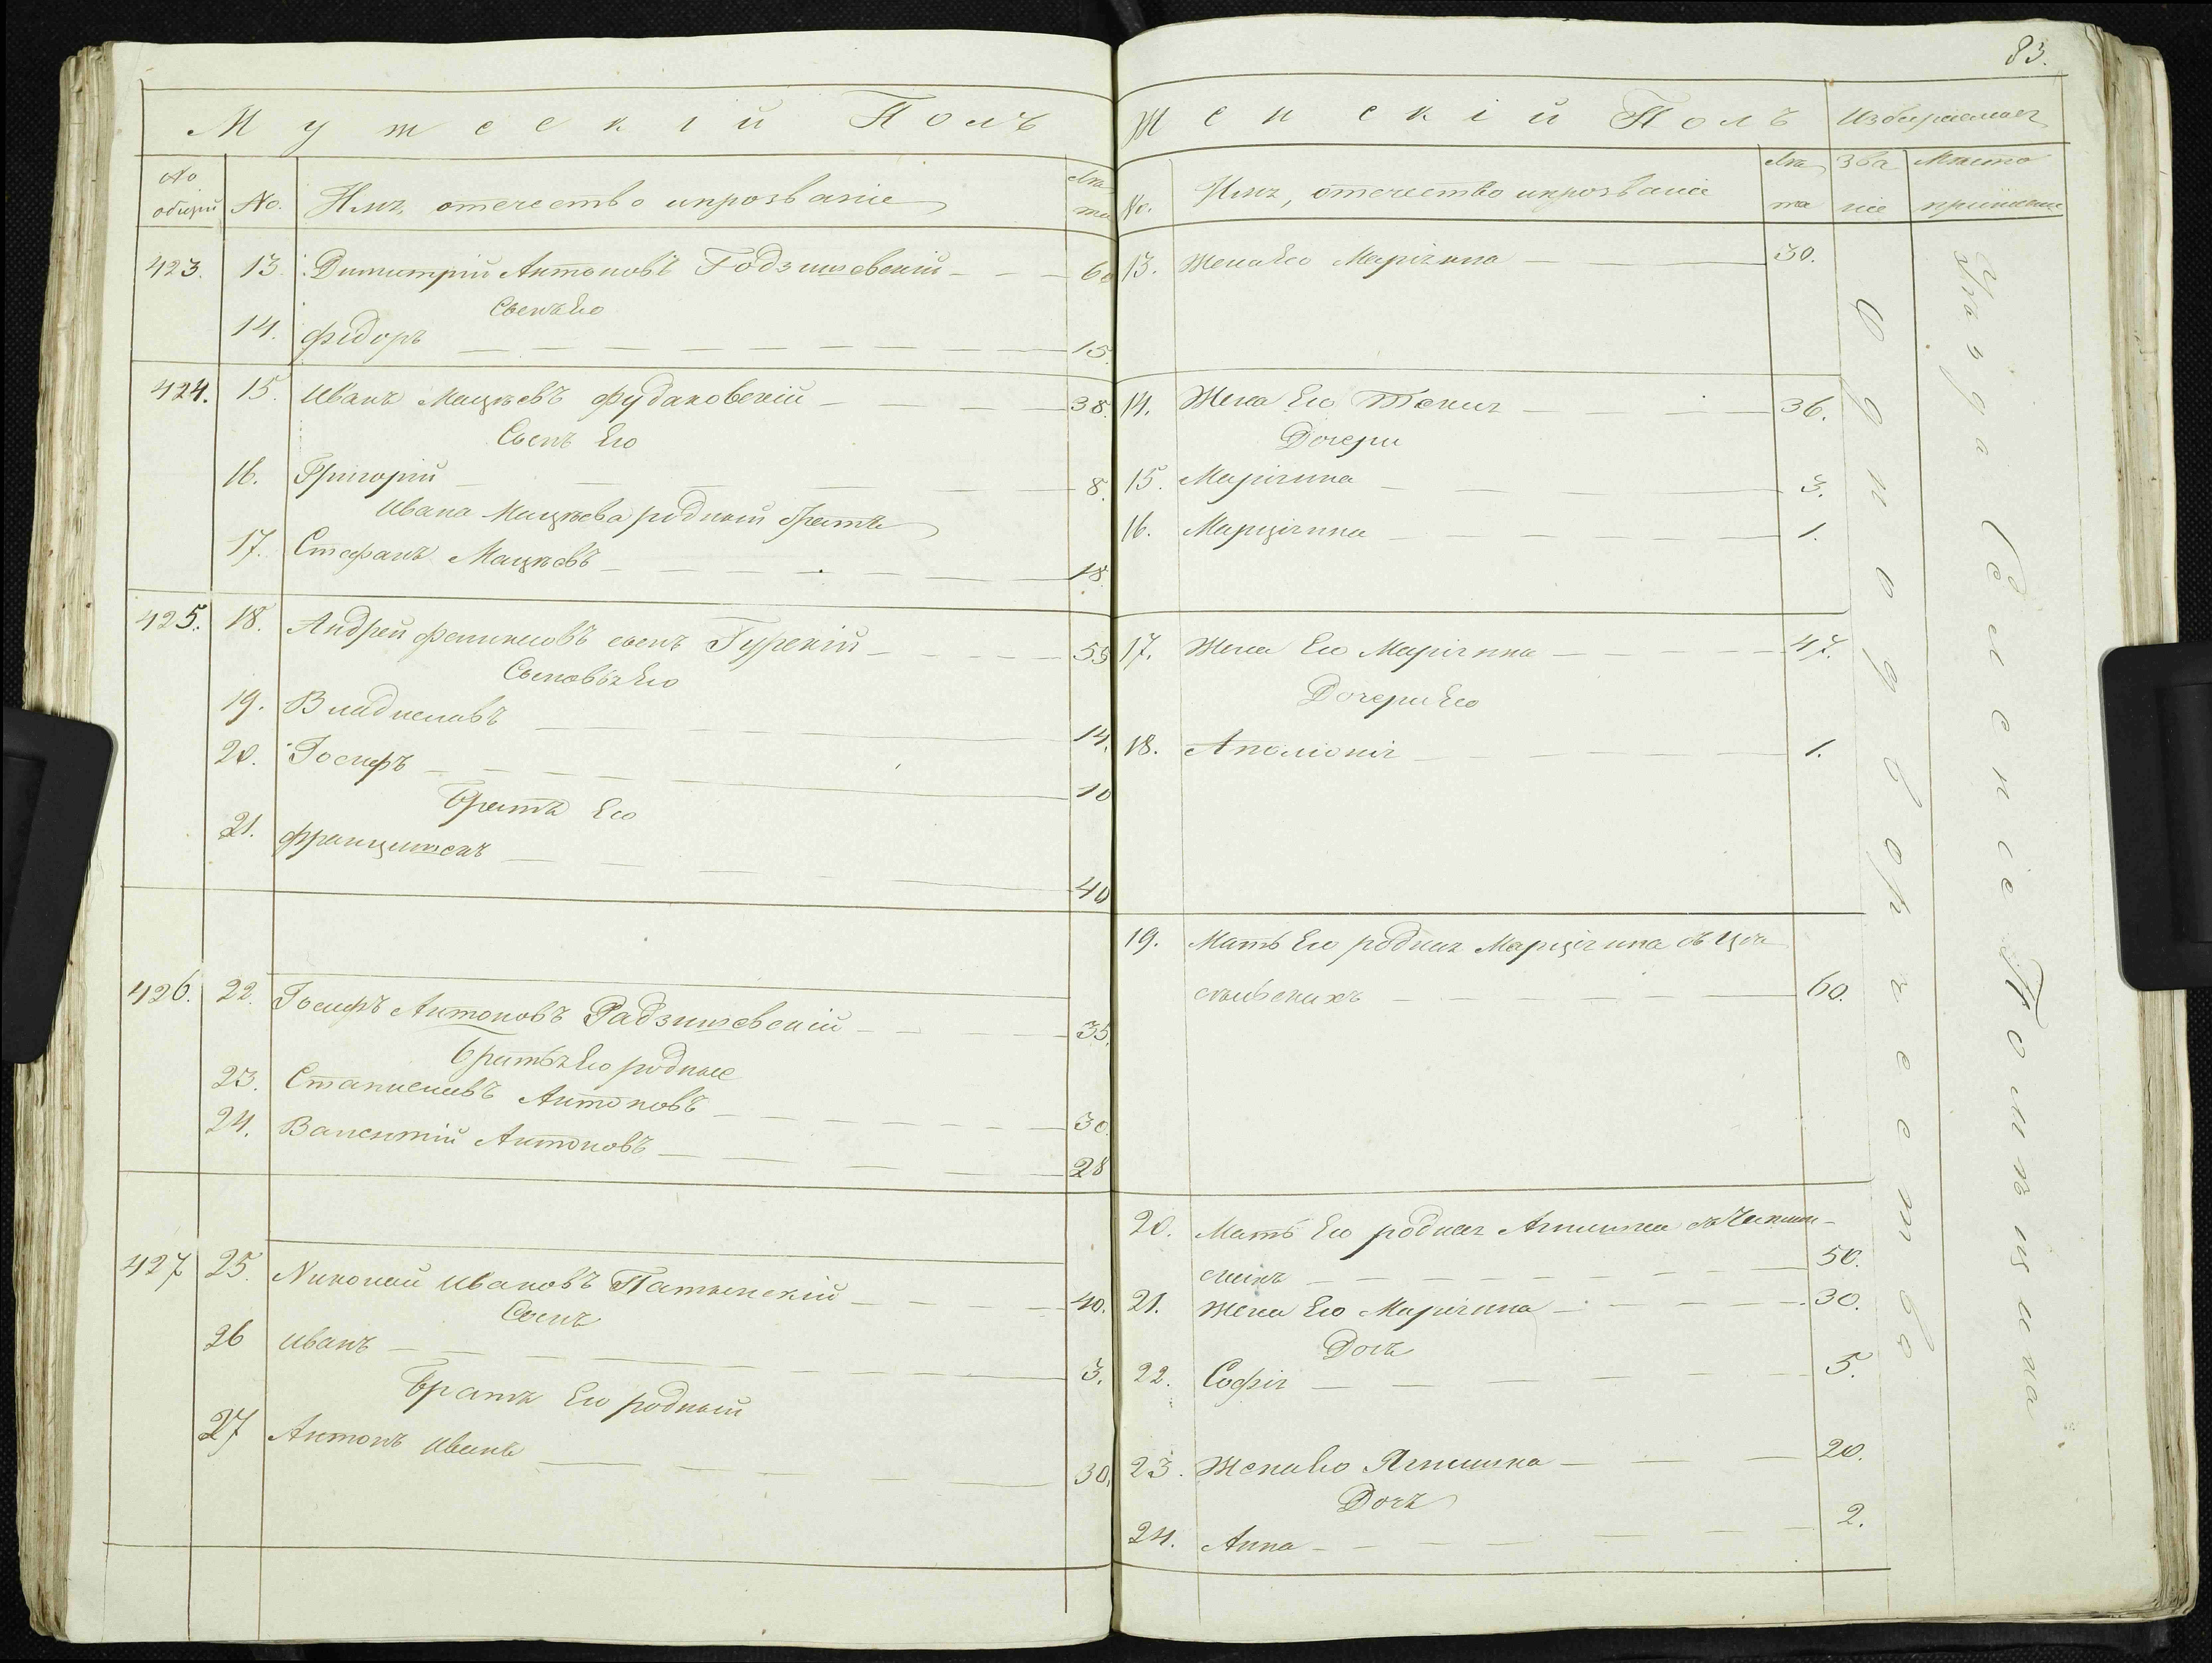 83.
Мужескій Полъ
№ общій
№.
Имя, отечество и прозваніе
Лѣта
423. 13. Димитрій Антоновъ Годзишевскій 60
Сынъ Его
14. Федоръ 15.
424. 15. Иванъ Мацѣевъ Фудаковскій 38.
Сынъ Его
16. Григорій 8.
Ивана Мацѣева родный братъ
17. Стефанъ Мацѣевъ 18.
425. 18. Андрей Феликсовъ сынъ Гурскій 55
Сыновья Его
19. Владиславъ 14.
20. Іосифъ 10
Братъ Его
21. Францишекъ 40
426. 22. Іосифъ Антоновъ Радзишевскій 35.
Братья Его родные
23. Станиславъ Антоновъ 30.
24. Валентій Антоновъ 28
427 25. Николай Ивановъ Патынскій 40.
Сынъ
26 Иванъ 3.
Братъ Его родный
27 Антонъ Иванъ 30.
Женскій Полъ
Избираемое
№.
Имя, отечество и прозваніе
Лѣта
Званіе
Мѣсто
13. Жена Его Маріянна 30.
14. Жена Его Текля 36.
Дочери
15. Маріянна 3.
16. Марціянна 1.
17. Жена Его Маріянна 47.
Дочери Его
18. Аполонія 1.
19. Мать Его родная Марціянна
60.
20. Мать Его родная
50.
21. Жена Его Маріянна 30.
Дочь
22. Софія 5.
23. Жена Его Ягнишка 20.
Дочь
24. Анна 2.
Однодворчество
Уѣзда Селеніе